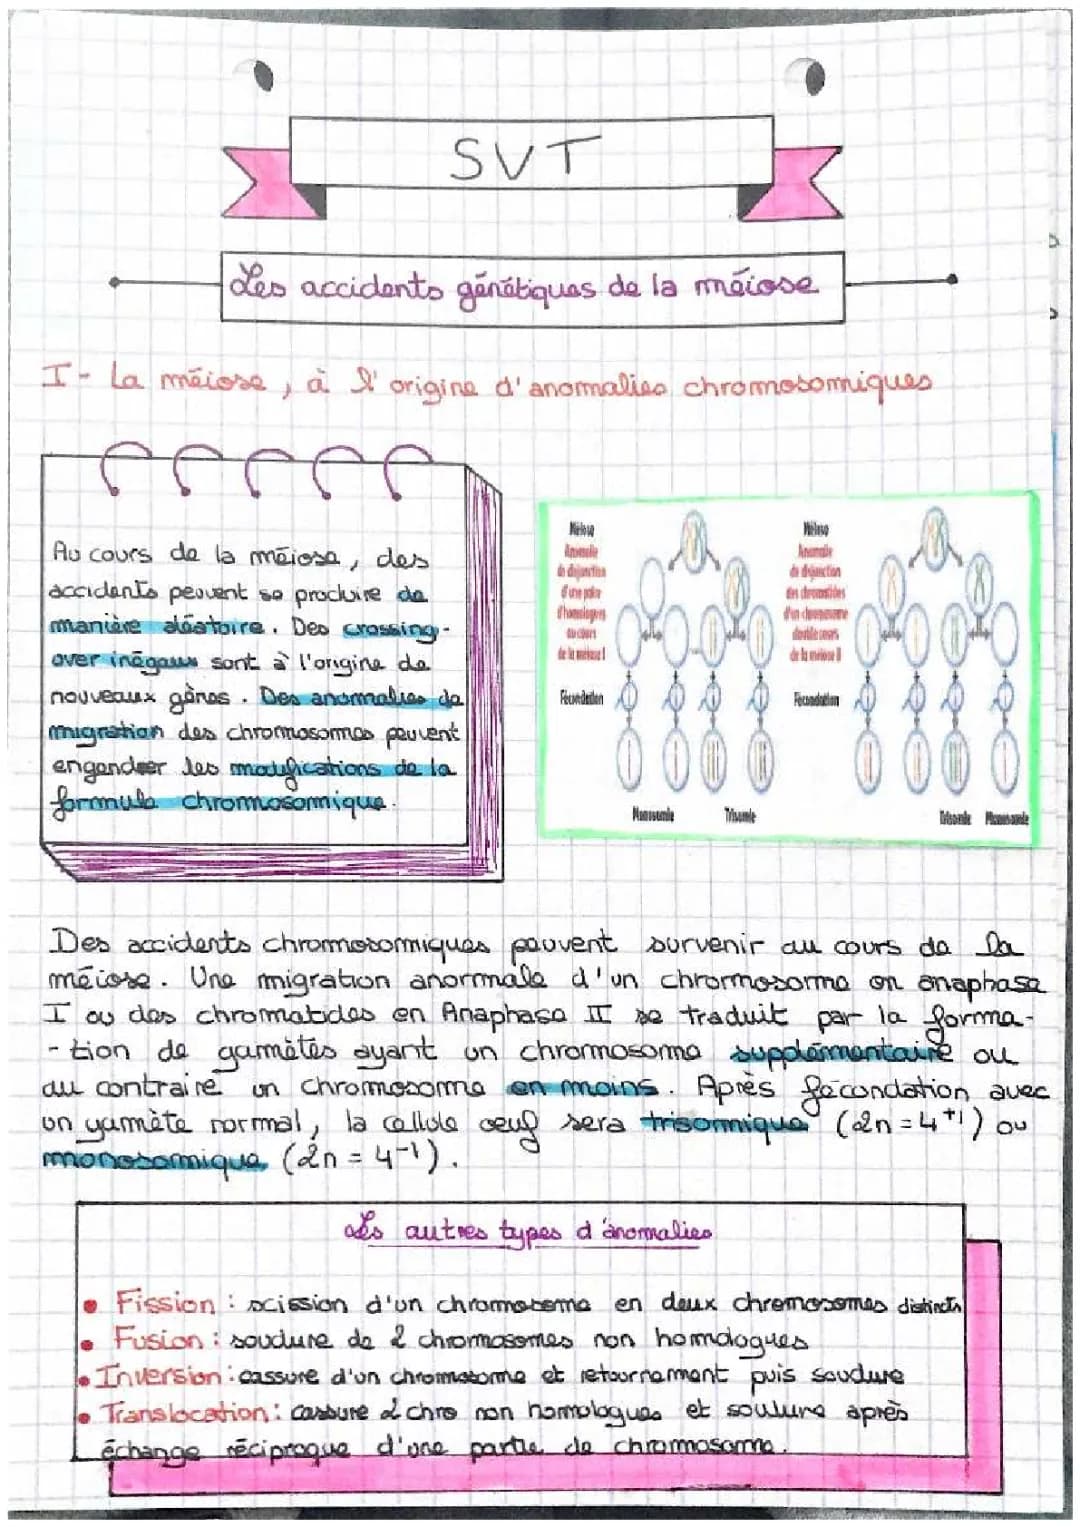 SVT
Les accidents génétiques de la méiose
I - La méiose, à l'origine d'anomalies chromosomiques
Au cours de la méiose, des
accidents peuvent se produire de
manière aléatoire. Des crossing-
over inégaux sont à l'origine de
nouveaux gènes. Des anomalies de
migration des chromosomes peuvent
engendrer les modifications de la
formule chromosomique.
Méiose
Anomalie
de disjonction
d'une paire
d'homologues
au cours
de la méiose I
Fécondation
Monosomie Trisomie
Méiose
Anomalie
de disjonction
des chromatides
d'un chromosome
double cours
de la méiose II
Fécondation
Trisomie Monosomie
Des accidents chromosomiques peuvent survenir au cours de la
méiose. Une migration anormale d'un chromosome en anaphase
I ou des chromatides en Anaphase II se traduit par la forma-
-tion de gamètes ayant un chromosome supplémentaire ou
au contraire un chromosome en moins. Après fécondation avec
un gamète normal, la cellule oeuf sera trisomique (2n = 4⁺¹) ou
monosomique (2n = 4⁻¹).
Les autres types d'anomalies
• Fission : scission d'un chromosome en deux chromosomes distincts
• Fusion : soudure de 2 chromosomes non homologues
• Inversion : cassure d'un chromosome et retournement puis soudure
• Translocation : cassure 2 chro non homologues et soudure après
échange réciproque d'une partie de chromosome.